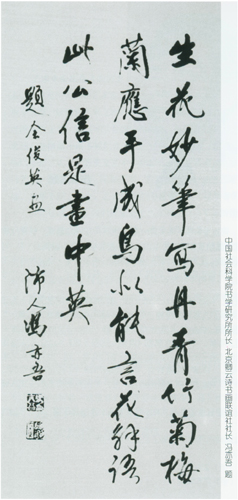 生花妙筆寫丹青竹菊梅
蘭應手成鳥似能言花解語
此公信是畫中英
題金俊英画
沛人馮亦吾
中国社会科学院书学研究所所长 北京卿云诗书画联谊社社长 冯亦吾 题